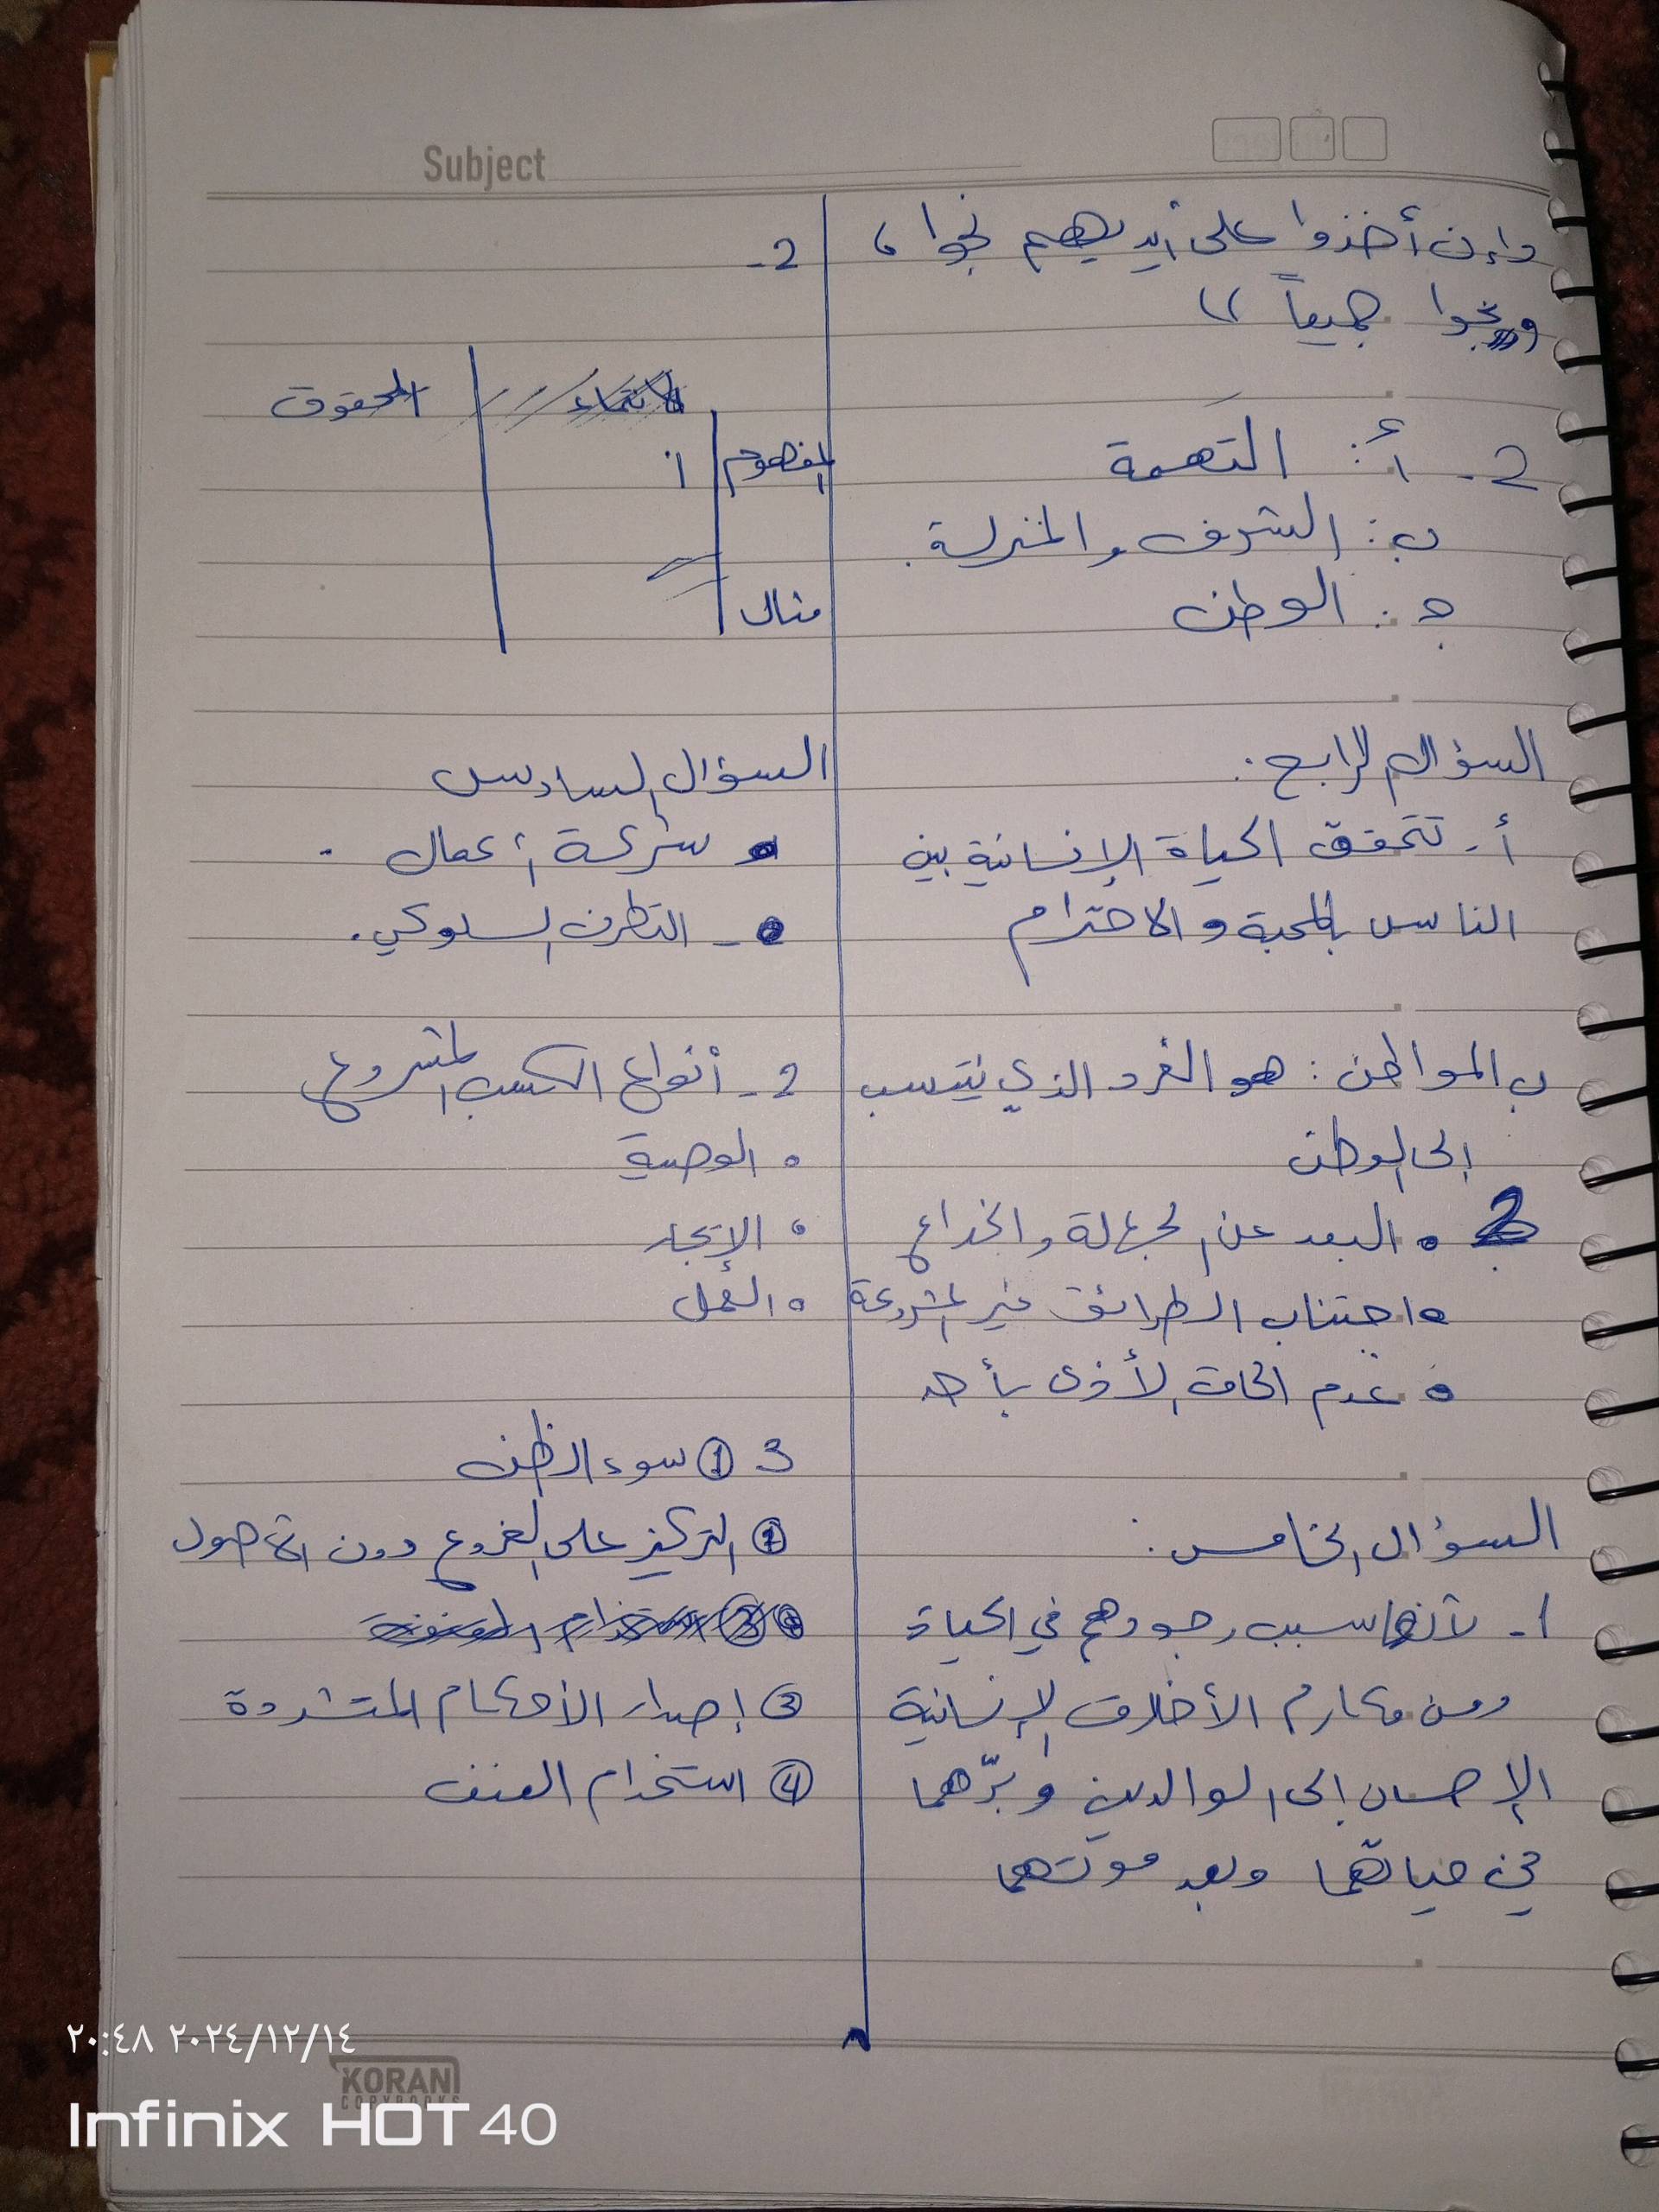 Subject
وإن أخذوا على أيديهم نجوا ،
ونجوا جميعاً ))
2- أ : التهمة
ب : الشرف والمنزلة .
ج : الوطن
السؤال الرابع :
أ- تتحقق الحياة الإنسانية بين
الناس بالمحبة والاحترام
ب المواطن : هو الفرد الذي ينتسب
إلى الوطن
2 • البعد عن الجهالة والخداع
• اجتناب الطرائق غير المشروعة
• عدم الحاق الأذى بأحد
السؤال الخامس :
1- لأنهما سبب وجودهم في الحياة
ومن مكارم الأخلاق الإنسانية
الإحسان إلى الوالدين وبرّهما
في حياتهما وبعد موتهما
2-
الحقوق
المفهوم
مثال
السؤال السادس
• شركة أعمال .
• - التطرف السلوكي .
2- أنواع الكسب المشروع
• الوصية
• الإتجار
• العمل
3 ① سوء الظن
② التركيز على الفروع دون الأصول
③ إصدار الأحكام المتشددة
④ استخدام العنف
٢٠:٤٨ ٢٠٢٤/١٢/١٤
KORAN
COPYBOOKS
Infinix HOT 40